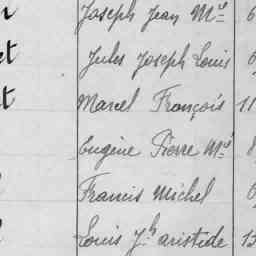 Joseph Jean Mie 6
et Jules Joseph Louis 6
t Marcel François 11
Eugène Pierre Mie 8
Francis Michel 6
Louis Jh aristide 13